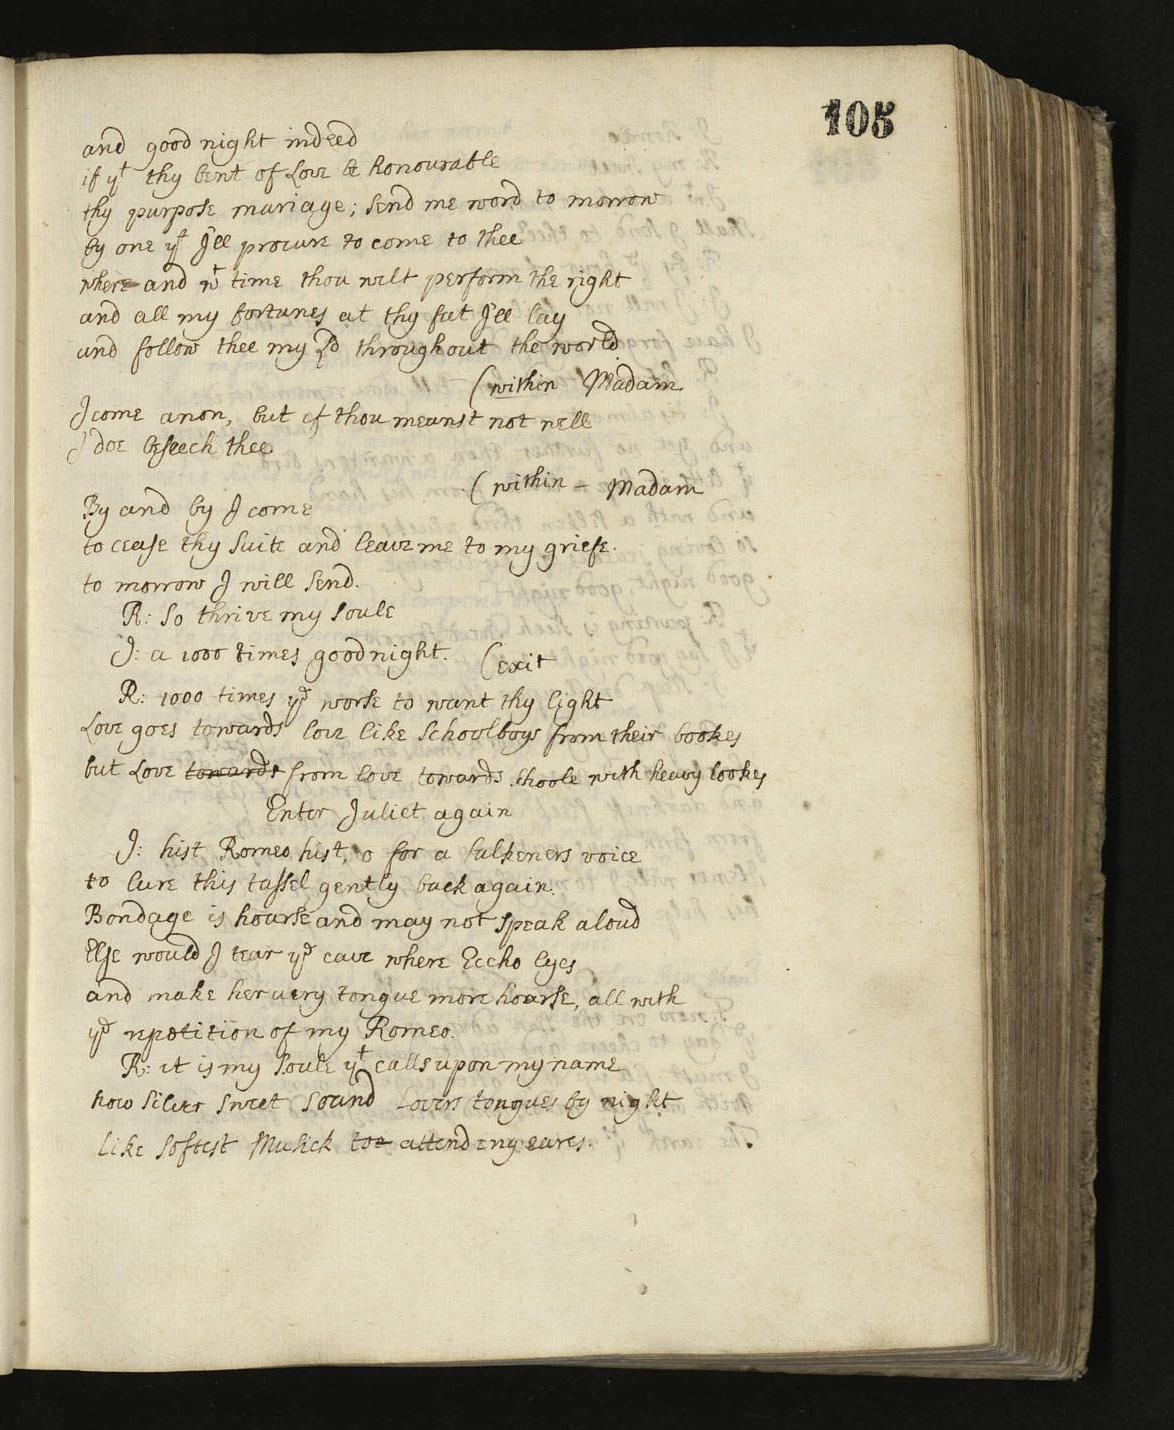 105
and good night indeed
if yt thy bent of Love be honourable
thy purpose mariage; send me word to morrow
by one yt I'll procure to come to thee
where and wt time thou wilt perform the right
and all my fortunes at thy feet I'll lay
and follow thee my Ld throughout the world
(within Madam
I come anon, but if thou meanst not well
I doe beseech thee
(within - Madam
By and by I come
to cease thy suite and leave me to my griefe.
to morrow I will send.
R: So thrive my soule
J: a 1000 times goodnight. (exit
R: 1000 times ye worse to want thy light
Love goes towards love like Schoolboys from their bookes
but Love towards from love towards schoole with heavy lookes
Enter Juliet again
J: hist Romeo hist, o for a falkeners voice
to lure this tassel gently back again.
Bondage is hoarse and may not speak aloud
Else would I tear ye cave where Eccho lyes
and make her very tongue more hoarse, all with
ye repetition of my Romeo.
R: it is my soule yt calls upon my name
how silver sweet sound Lovers tongues by night
Like softest Musick toe attending eares.